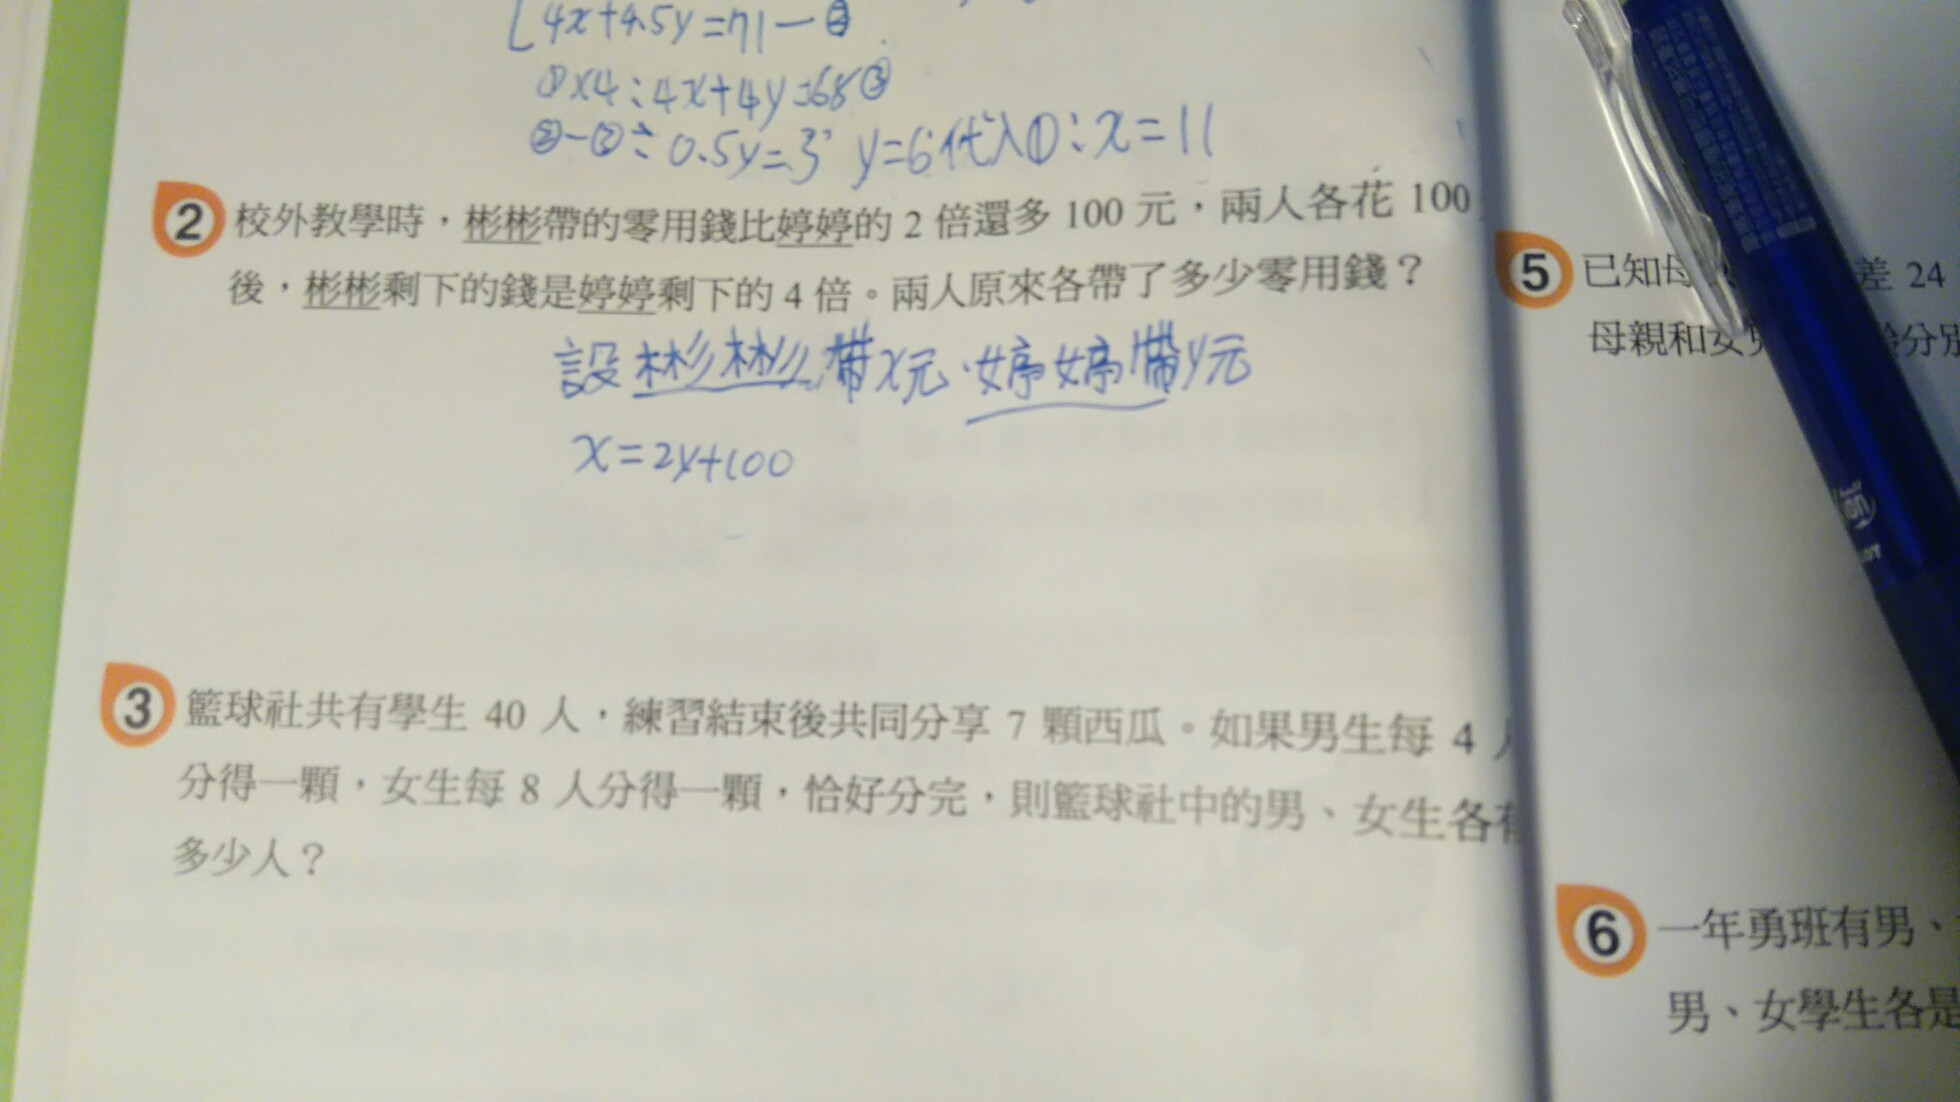 4x+4.5y=71—②
①×4:4x+4y=68③
②-③: 0.5y=3 y=6代入①:x=11
2 校外教學時，彬彬帶的零用錢比婷婷的 2 倍還多 100 元，兩人各花 100
後，彬彬剩下的錢是婷婷剩下的 4 倍。兩人原來各帶了多少零用錢？
設彬彬帶x元.婷婷帶y元
x=2y+100
3 籃球社共有學生 40 人，練習結束後共同分享 7 顆西瓜。如果男生每 4 人
分得一顆，女生每 8 人分得一顆，恰好分完，則籃球社中的男、女生各有
多少人？
5 已知母 差 24
母親和女兒 齡分別
6 一年勇班有男、
男、女學生各是